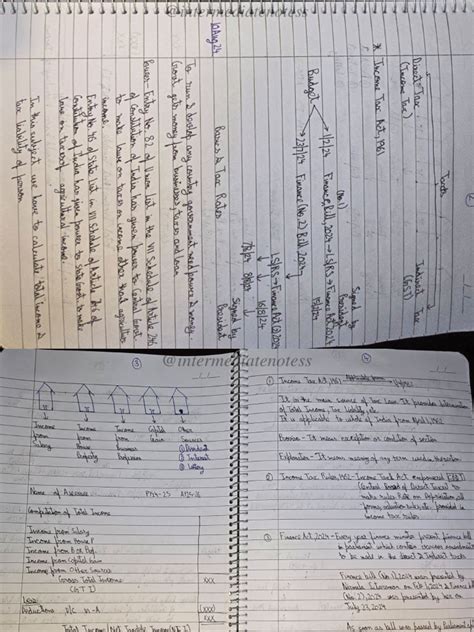 @intermediatenotess
10 Aug 24
Basics & Tax Rates
To run & develop any country government need power & money.
Govt gets money from businesses, taxes and loan
Power - Entry No. 82 of Union list in the VII Schedule of Article 246
of Constitution of India has given power to Central Govt
to make laws on taxes on income other than agriculture
income.
Entry No. 46 of State list in VII Schedule of Article 246 of
Constitution of India has given power to State Govt to make
laws on taxes of agricultural income.
In this subject we have to calculate total income &
tax liability of person
②
Taxes
Direct Tax
(Income Tax)
Indirect Tax
(GST)
* Income Tax Act, 1961
Budget
1/2/24 Finance Bill, 2024 → LS/RS → Finance Act, 2024
(No.1)
Signed by
President
15/2/24
23/7/24 Finance (No. 2) Bill 2024
LS/RS → Finance Act (2) 2024
16/8/24
Signed by
President
@intermediatenotess
③
Income from Salary
Income from House Property
Income from
Income from Capital Gain
Income from Other Sources
① Dividend
② Interest
③ Lottery
Name of Assessee PY24-25 AY25-26
Computation of Total Income
Income from Salary
Income from House P
Income from B or Prof.
Income from Capital Gain
Income from Other Sources
Gross Total Income xxx
(GTI)
Less:
Deductions U/C VI-A (xxx)
Total Income xxx
④
① Income Tax Act, 1961 - Applicable from 1/4/1962
It is the main source of Tax Law. It provides determination
of Total Income, Tax liability, etc.
It is applicable to whole of India from April 1, 1962
Proviso - It means exception or condition of section
Explanation - It means meaning of any term used in the section
② Income Tax Rules, 1962 - Income Tax Act empowered CBDT
(Central Board of Direct Taxes) to
make rules
forms, valuation rules, etc. provided in
income tax rules
③ Finance Act, 2024 - Every year finance minister present finance bill
in parliament which contain various amendments
to be made in the direct & indirect taxes
Finance Bill (No.1) 2024 was presented by
Nirmala Sitharaman on Feb 1, 2024 & Finance
(No. 2), 2024 was presented by her on
July 23, 2024
As soon as bill was presented by Central Govt